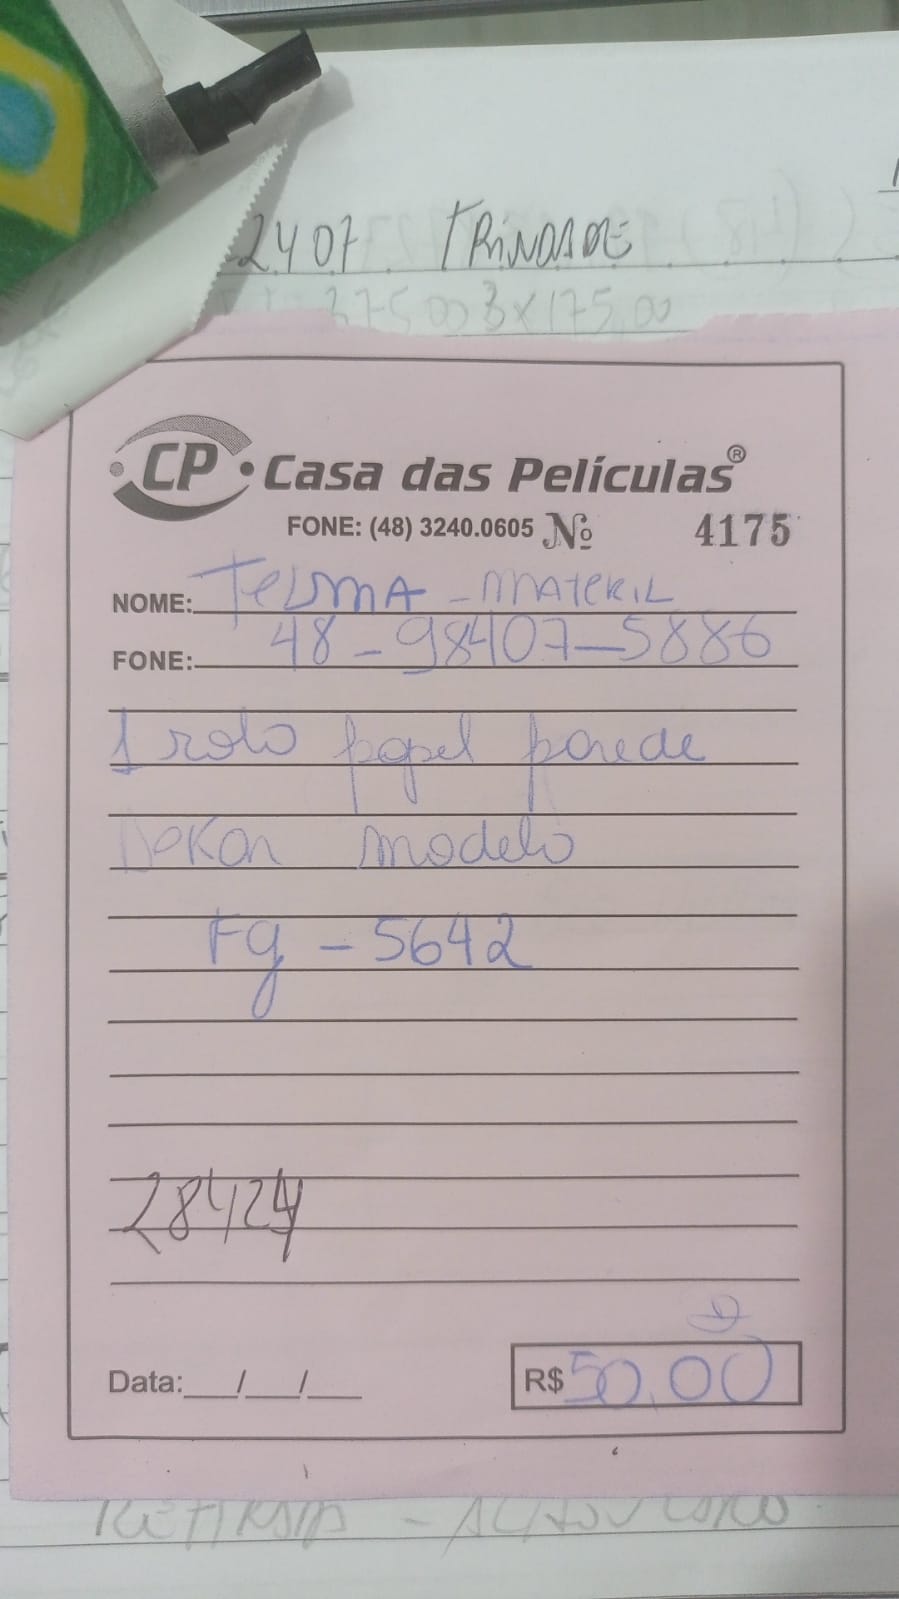 2407 TRINDADE
375,00 3x175,00
CP Casa das Películas®
FONE: (48) 3240.0605 Nº 4175
NOME: TELMA - MATERIL
FONE: 48-98407-5886
1 rolo papel parede
Dekor modelo
Fg - 5642
28424
Data: __/__/__ R$ 50,00
RETIRADA -